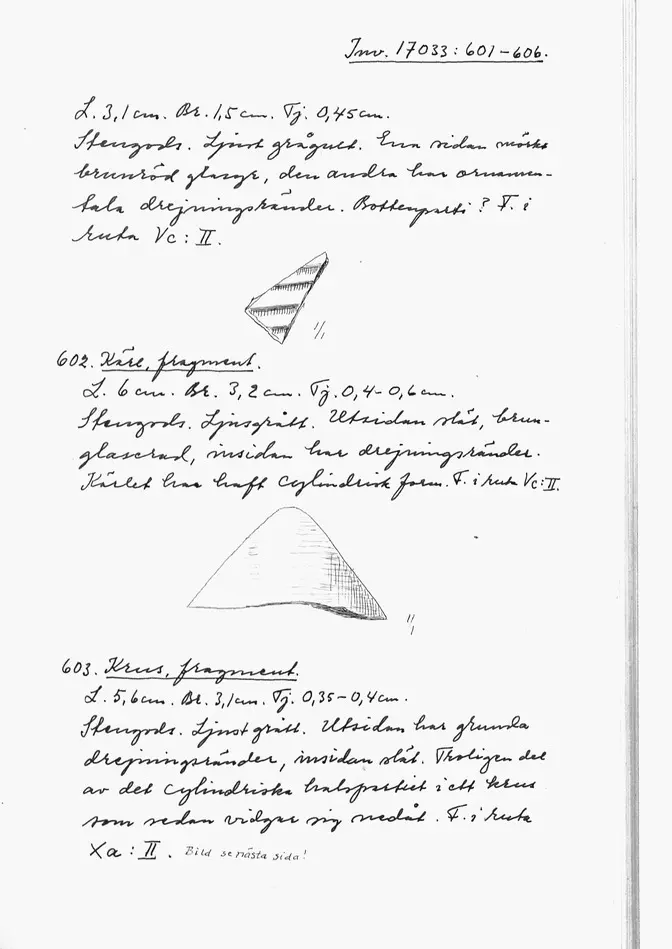 Inv. 17033:601-606.
L. 3,1 cm. Br. 1,5 cm. Tj. 0,45 cm.
Stengods. Ljust grågult. Ena sidan mörkt
brunröd glasyr, den andra har ornamen-
tala drejningsränder. Bottenparti? F. i
ruta Vc: II.
1/1
602. Kärl, fragment.
L. 6 cm. Br. 3,2 cm. Tj. 0,4-0,6 cm.
Stengods. Ljusgrått. Utsidan slät, brun-
glaserad, insidan har drejningsränder.
Kärlet har haft cylindrisk form. F. i ruta Vc:II.
1/1
603. Krus, fragment.
L. 5,6 cm. Br. 3,1 cm. Tj. 0,35-0,4 cm.
Stengods. Ljust grått. Utsidan har grunda
drejningsränder, insidan slät. Troligen del
av det cylindriska halspartiet i ett krus
som sedan vidgar sig nedåt. F. i ruta
Xa: II. Bild se nästa sida!